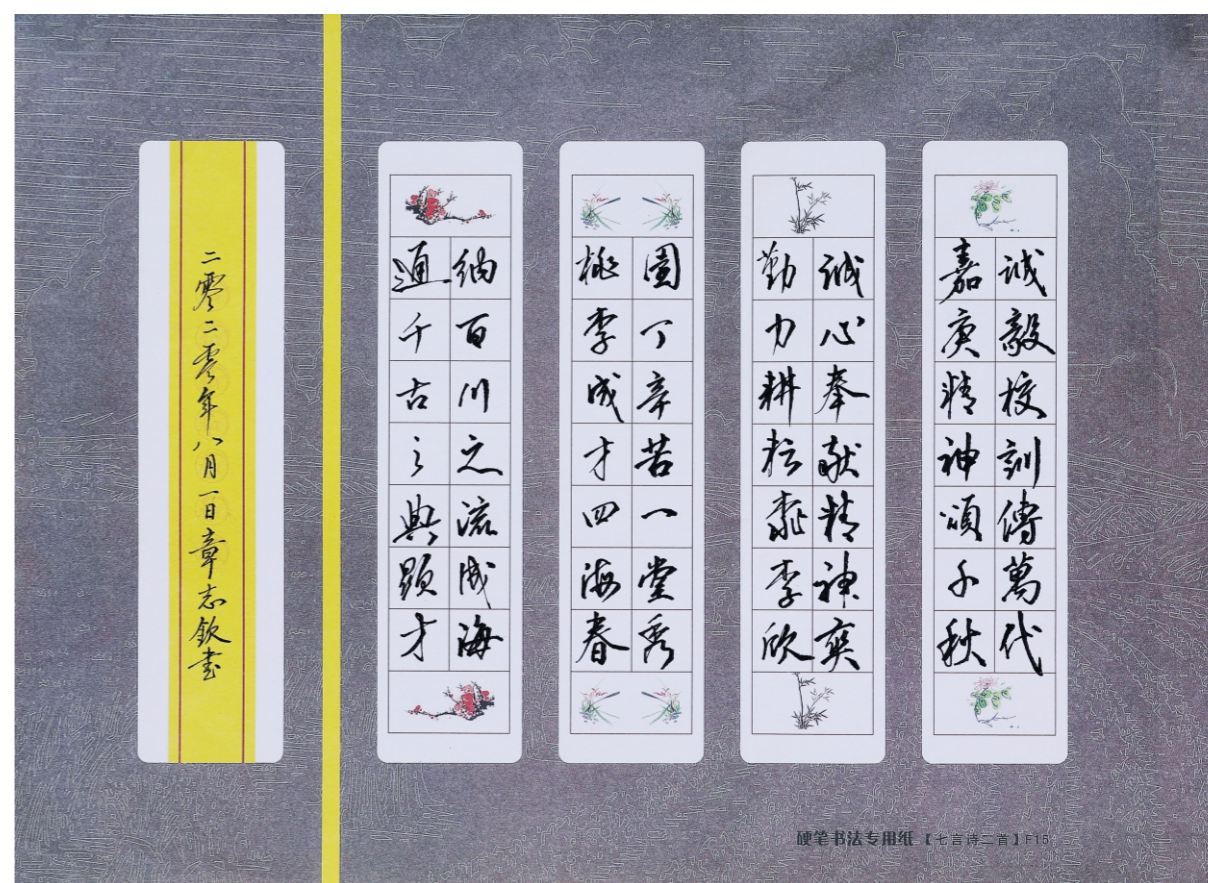 誠毅校訓傳萬代
嘉庚精神頌千秋
誠心奉献精神爽
勤力耕耘桃李欣
園丁辛苦一堂秀
桃李成才四海春
納百川之流成海
通千古之典顕才
二零二零年八月一日章志欽書
硬笔书法专用纸【七言诗二首】F15